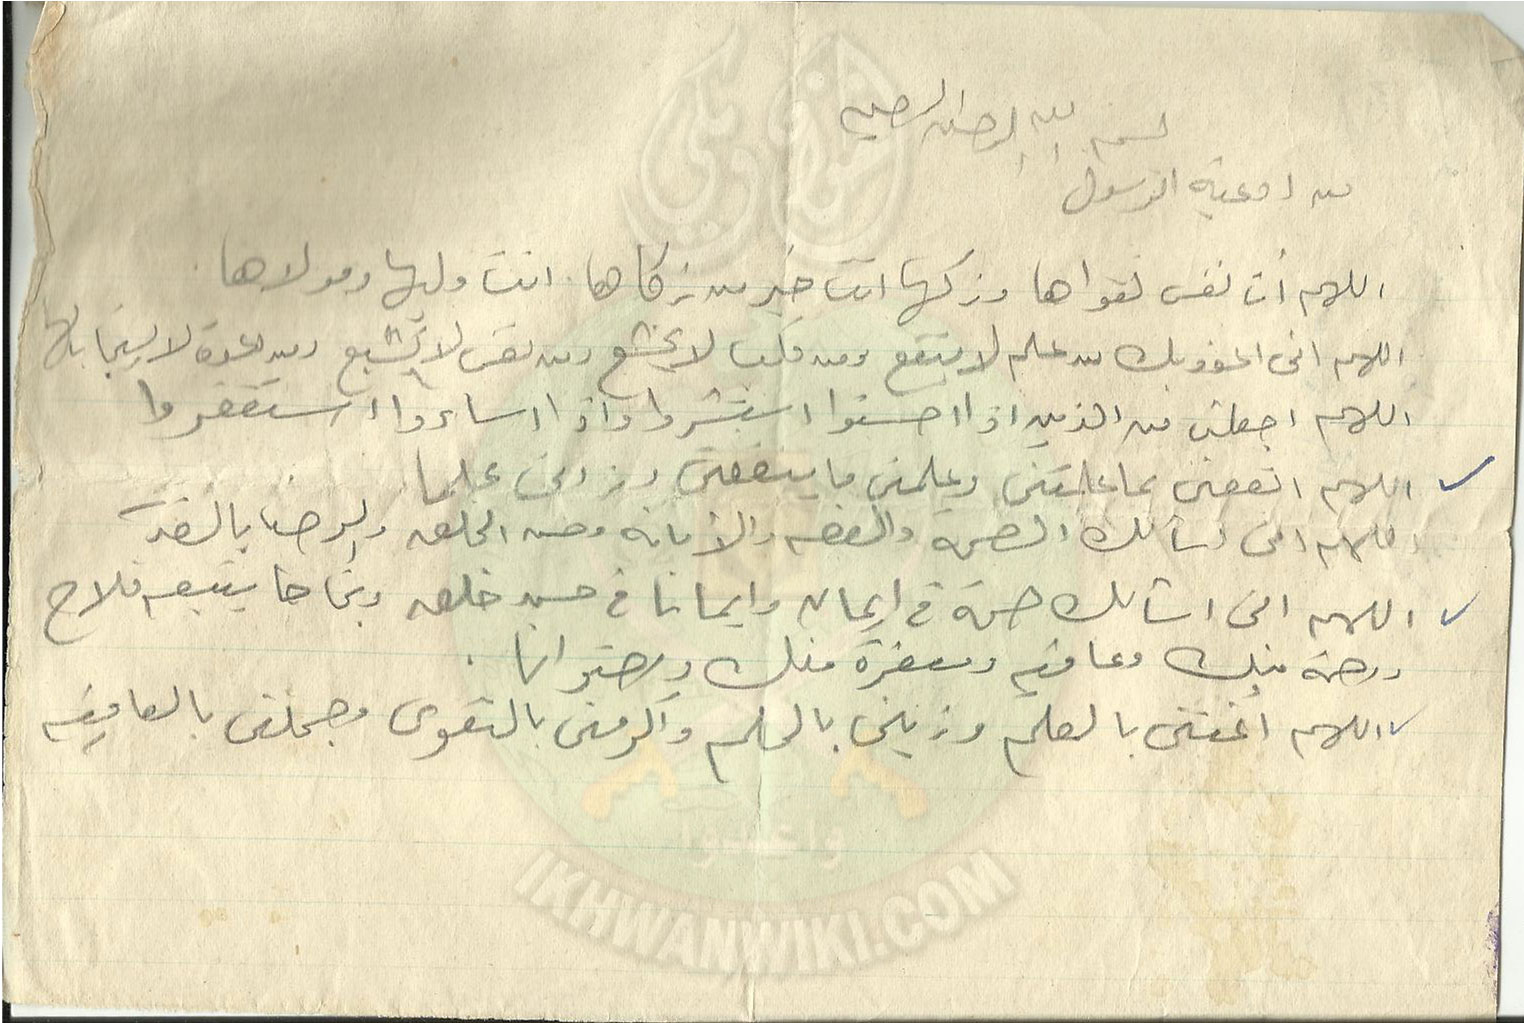 بسم الله الرحمن الرحيم
من ادعية الرسول
اللهم أت نفسى تقواها وزكها انت خير من زكاها. انت وليها ومولاها.
اللهم انى اعوذ بك من علم لا ينفع ومن قلب لا يخشع ومن نفس لا تشبع ومن دعوة لا يستجاب لها
اللهم اجعلنى من الذين اذا احسنوا استبشروا واذا اساءوا استغفروا
اللهم انفعنى بما علمتنى وعلمنى ما ينفعنى وزدنى علما
اللهم انى اسألك الصحة والعفه والأمانه وحسن الخلق والرضا بالقدر
اللهم انى اسألك صحة فى إيمان وايمانا فى حسن خلق ونجاحا يتبعه فلاح
ورحمة منك وعافيه ومغفرة منك ورضوانا.
اللهم أغننى بالعلم وزينى بالحلم وأكرمنى بالتقوى وجملنى بالعافيه
وأعدوا
IKHWANWIKI.COM